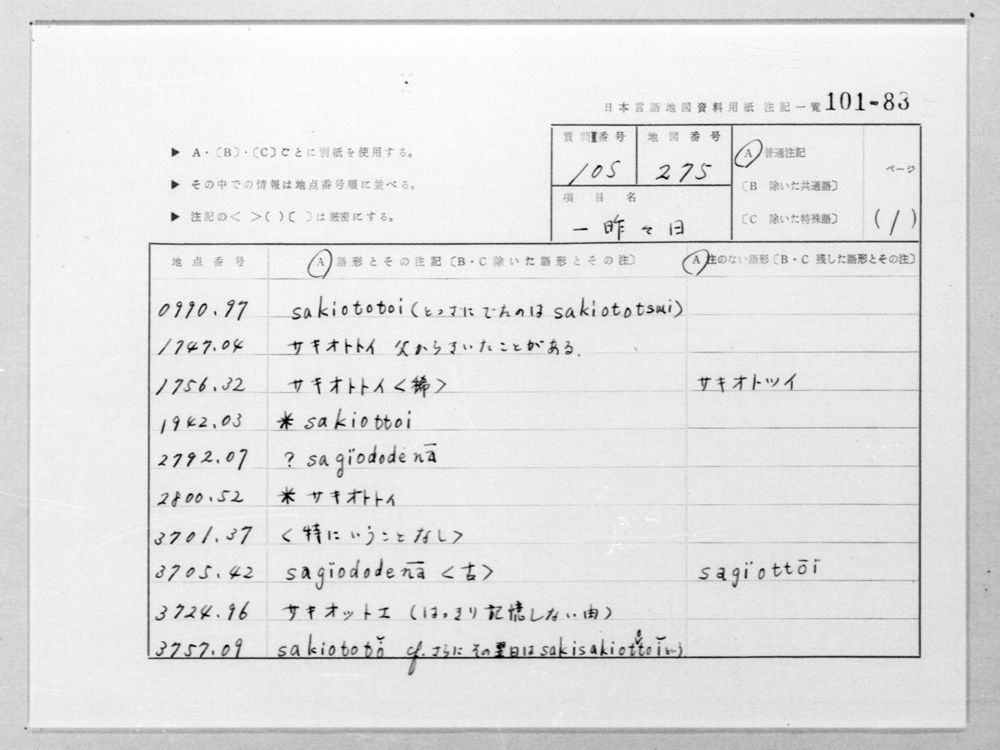 日本言語地図資料用紙 注記一覧 101-83
▶ A・〔B〕・〔C〕ごとに別紙を使用する。
▶ その中での情報は地点番号順に並べる。
▶ 注記の< >( )〔 〕は厳密にする。
質問番号 地図番号 A 普通注記 ページ
105 275 〔B 除いた共通語〕
項目名 〔C 除いた特殊語〕 (1)
一昨々日
地点番号 A 語形とその注記〔B・C 除いた語形とその注〕 A 注のない語形〔B・C 残した語形とその注〕
0990.97 sakiototoi (とっさにでたのは sakiototsɯi)
1747.04 サキオトトイ 父からきいたことがある.
1756.32 サキオトトイ <稀> サキオトツイ
1942.03 * sakiottoi
2792.07 ? sagïododenā
2800.52 * サキオトトイ
3701.37 <特にいうことなし>
3705.42 sagïododenā <古> sagïottōï
3724.96 サキオットエ (はっきり記憶しない由)
3757.09 sakiototo cf. さらにその翌日は sakisakiottoi という)